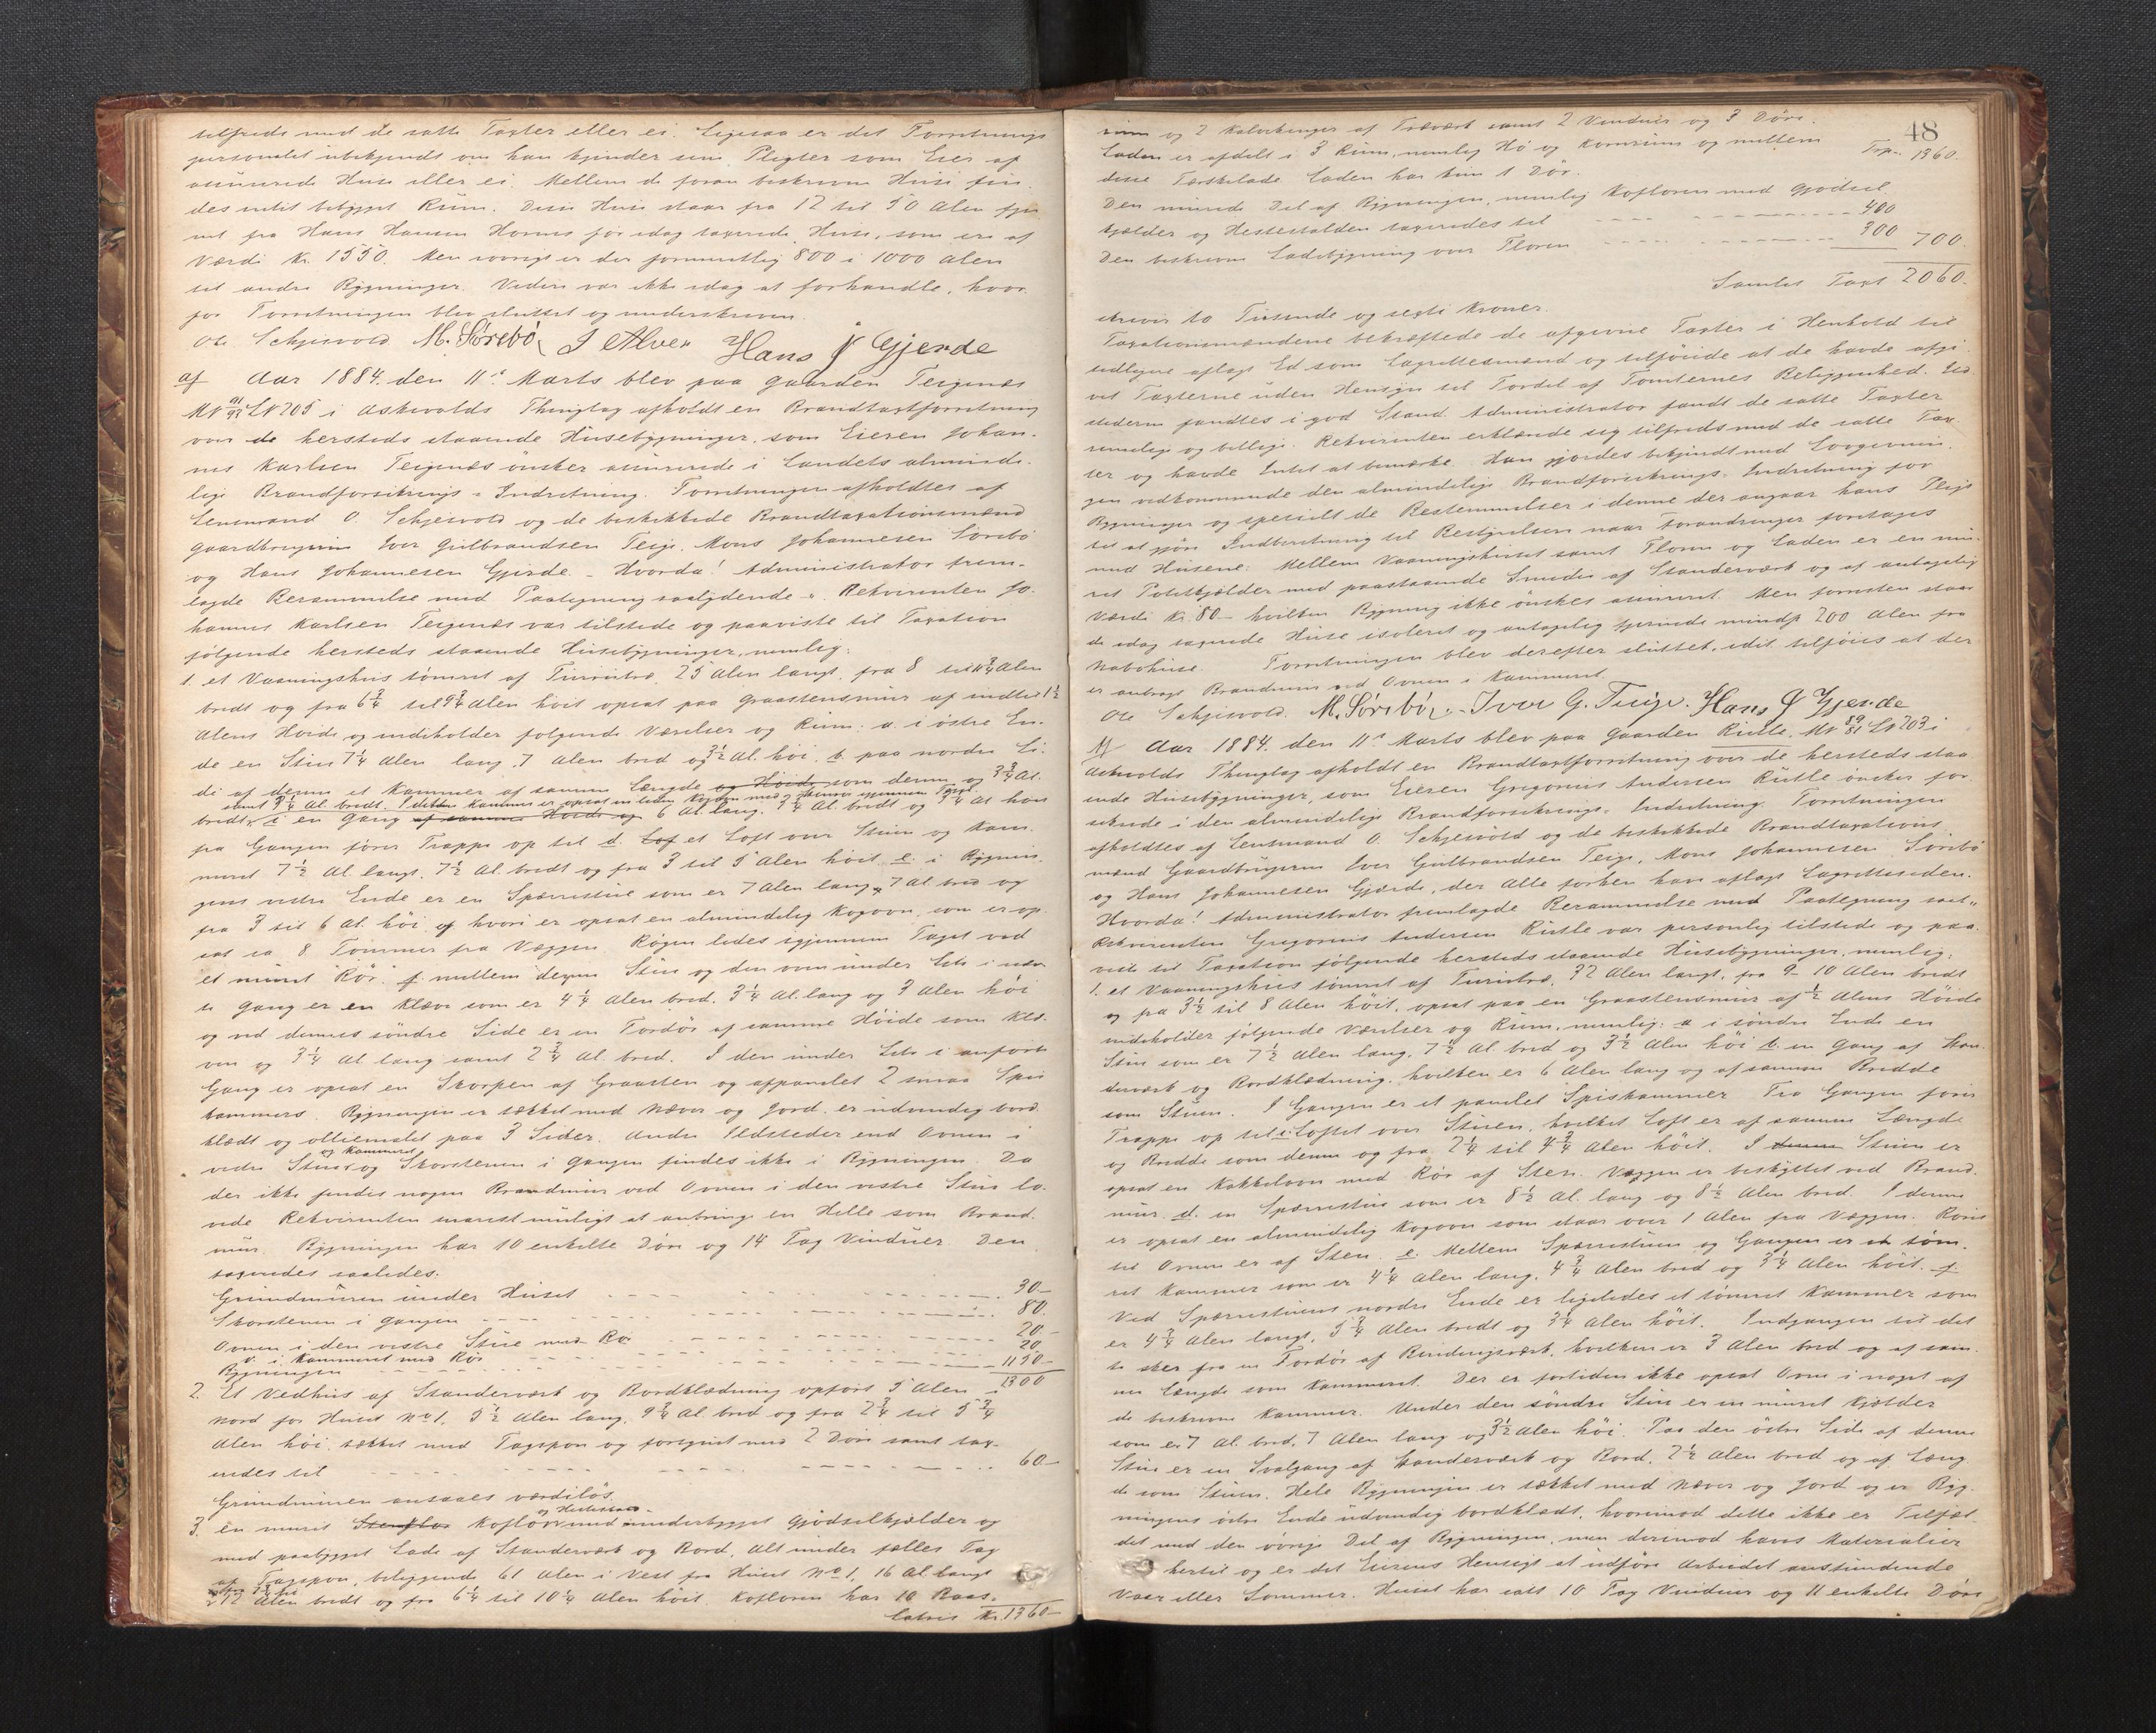 tilfreds med de satte Taxter eller ei. Ligesaa er det Forretnings
personalet ubekjendt om han kjender sine Pligter som Eier af
assurerede Huse eller ei. Mellem de foran beskrevne Huse fin-
des intet bebygget Rum. Disse Huse staar fra 12 til 50 Alen fjer-
net fra Hans Hansen Hornes før idag taxerede Huse, som er af
Værdi Kr. 1550. Men iøvrigt er der formentlig 800 à 1000 Alen
til andre Bygninger. Videre var ikke idag at forhandle, hvor-
for Forretningen blev sluttet og underskreven.
Ole Schjesvold M. Sörebö J Alver Hans J Gjerde
Aar 1884. den 11te Marts blev paa Gaarden Teigenæs
LN 205 i Askevolds Thinglag afholdt en Brandtaxtforretning
over de hersteds staaende Husebygninger, som Eieren Johan-
nes Karlsen Teigenæs ønsker assurerede i Landets alminde-
lige Brandforsikrings-Indretning. Forretningen afholdtes af
Lensmand O. Schjesvold og de beskikkede Brandtaxationsmænd
Gaardbrugerne Iver Gulbrandsen Teige, Mons Johannesen Sörebö
og Hans Johannesen Gjerde. - Hvorda! Administrator frem-
lagde Berammelse med Paategning saalydende. Rekvirenten Jo-
hannes Karlsen Teigenæs var tilstede og paaviste til Taxation
følgende hersteds staaende Husebygninger, nemlig:
1. et Vaaningshus tømret af Furutræ, 25 Alen langt, fra 8 til Alen
bredt og fra 6 3/4 til Alen høit opsat paa Graastensmur af indtil 1 1/2
Alens Høide og indeholder følgende Værelser og Rum: a. i østre En-
de en Stue 7 1/4 Alen lang, 7 Alen bred og 3 1/2 Al. høi, b. paa nordre Si-
de af denne et Kammer af samme Længde og Høide som denne og 3 3/4 Al.
bredt, c. en Gang af samme Høide og 6 Al. lang, 3 1/4 Al. bredt og Al. høi
fra Gangen fører Trappe op til d. Lof et Loft over Stuen og Kam-
meret 7 1/2 Al. langt, 7 1/2 Al. bredt og fra 3 til 5 Alen høit, e. i Bygnin-
gens vestre Ende er en Spærrestue som er 7 Alen lang, 7 Al. bred og
fra 3 til 6 Al. høi, og hvori er opsat en almindelig Kogovn, som er op-
sat ca 8 Tommer fra Væggen. Røgen ledes igjennem Taget ved
et muret Rör. f. mellem denne Stue og den oven under Litr. c nævn-
te Gang er en Kleve som er 4 1/4 Alen bred, 3 1/4 Al. lang og 3 Alen høi
og ved dennes søndre Side er en Fordør af samme Høide som Kle-
ven og 3 1/4 Al. lang samt 2 3/4 Al. bred. I den under Litr. c anførte
Gang er opsat en Skorpen af Graasten og afpanelet 2 smaa Spis-
kammers. Bygningen er tækket med Næver og Jord, er udvendig bord-
klædt og oliemalet paa 3 Sider. Andre Ildsteder end Ovnen i
og Kammeret
vestre Stue og Skorstenen i Gangen findes ikke i Bygningen. Da
der ikke findes nogen Brandmur ved Ovnen i den vestre Stue lo-
vede Rekvirenten snarest muligt at anbringe en Helle som Brand-
mur. Bygningen har 10 enkelte Døre og 14 Fag Vinduer. Den
taxeredes saaledes:
Grundmuren under Huset 30-
Skorstenen i Gangen 80.
Ovnen i den vestre Stue med Rör 20-
D. i Kammeret med Rör 20
Bygningen 1150-
1300
2. Et Vedhus af Standerværk og Bordklædning opført 5 Alen
nord for Huset No 1, 5 1/2 Alen lang, 9 3/4 Al. bred og fra 2 3/4 til 5 3/4
Alen høi, tækket med Tagspon og forsynet med 2 Døre samt tax-
eredes til 60-
Grundmuren ansaaes værdiløs.
3. en muret Stenflor Koflor med underbygget Gjødselkjælder og
med paabygget Lade af Standerværk og Bord, alt under fælles Tag
af Tagspon, beliggende 61 Alen i Vest fra Huset No 1, 16 Al. langt
12 Alen bredt og fra 6 1/4 til 10 1/4 Alen høit. Kofloren har 10 Baas-
Latris Kr. 1360-
48
rum og 2 Kalvebinger af Træværk samt 2 Vinduer og 3 Døre.
Trp. 1360.
Laden er afdelt i 3 Rum, nemlig Hö og Kornrum og mellem
disse Tærskelade. Laden har kun 1 Dör.
Den murede Del af Bygningen, nemlig Kofloren med Gjødsel-
kjælder og Hestestalden taxeredes til 400
Den beskrevne Ladebygning over Floren 300 700.
Samlet Taxt 2060.
skriver to Tusende og sexti Kroner.
Taxationsmændene bekræftede de afgivne Taxter i Henhold til
tidligere aflagt Ed som Lagrettesmænd og tilføiede at de havde afgi-
vet Taxterne uden Hensyn til Fordel af Tomternes Beliggenhed. Ild-
stederne fandtes i god Stand. Administrator fandt de satte Taxter
rimelige og billige. Rekvirenten erklærede sig tilfreds med de satte Tax-
ter og havde Intet at bemærke. Han gjordes bekjendt med Lovgivnin-
gen vedkommende den almindelige Brandforsikrings-Indretning for
Bygninger og specielt de Bestemmelser i denne der angaar hans Pligt
til at gjøre Indberetning til Bestyrelsen naar Forandringer foretages
med Husene. Mellem Vaaningshuset samt Floren og Laden er en mu-
ret Potetkjælder med paastaaende Smedie af Standerværk og af antagelig
Værdi Kr. 80- hvilken Bygning ikke ønskes assureret. Men forresten staar
de idag taxerede Huse isoleret og antagelig fjernede mindst 200 Alen fra
Nabohuse. Forretningen blev derefter sluttet, idet tilføies at der
er anbragt Brandmur ved Ovnen i Kammeret.
Ole Schjesvold. M. Sörebö. Iver G. Teige. Hans J Gjerde
Aar 1884. den 11te Marts blev paa Gaarden Rutle, MN LN 203 i
Askevolds Thinglag afholdt en Brandtaxtforretning over de hersteds staa-
ende Husebygninger, som Eieren Gregorius Andersen Rutle ønsker for-
sikrede i den almindelige Brandforsikrings-Indretning. Forretningen
afholdtes af Lensmand O. Schjesvold og de beskikkede Brandtaxations-
mænd Gaardbrugerne Iver Gulbrandsen Teige, Mons Johannesen Sörebö
og Hans Johannesen Gjærde, der Alle forhen har aflagt Lagretteseden.
Hvorda! Administrator fremlagde Berammelse med Paategning saal.
Rekvirenten Gregorius Andersen Rutle var personlig tilstede og paa-
viste til Taxation følgende hersteds staaende Husebygninger, nemlig:
1. et Vaaningshus tømret af Furutræ, 32 Alen langt, fra 9-10 Alen bredt
og fra 3 1/2 til 8 Alen høit, opsat paa en Graastensmur af 1/2 Alens Høide
indeholder følgende Værelser og Rum, nemlig: a i søndre Ende en
Stue som er 7 1/2 Alen lang, 7 1/2 Al. bred og 3 1/2 Alen høi b. en Gang af Stan-
derværk og Bordklædning, hvilken er 6 Alen lang og af samme Bredde
som Stuen. I Gangen er et panelet Spiskammer. Fra Gangen fører
Trappe op til c. Loftet over Stuen, hvilket Loft er af samme Længde
og Bredde som denne og fra 2 1/4 til 4 3/4 Alen høit. I denne Stuen er
opsat en Kakkelovn med Rör af Sten. Væggen er beskyttet ved Brand-
mur. d. en Spærrestue som er 8 1/2 Al. lang og 8 1/2 Alen bred. I denne
er opsat en almindelig Kogovn som staar over 1 Alen fra Væggen. Röret
til Ovnen er af Sten. e. Mellem Spærrestuen og Gangen er et tøm-
ret Kammer som er 4 1/4 Alen lang, 4 3/4 Alen bred og 3 1/4 Alen høit. f.
Ved Spærrestuens nordre Ende er ligeledes et tømret Kammer som
er 4 3/4 Alen langt, 5 3/4 Alen bredt og 3 1/4 Alen høit. Indgangen til det-
te sker fra en Fordör af Bindingsværk, hvilken er 3 Alen bred og af sam-
me Længde som Kammeret. Der er fortiden ikke opsat Ovn i noget af
de beskrevne Kammer. Under den søndre Stue er en muret Kjælder
som er 7 Al. bred, 7 Alen lang og 3 1/2 Alen høi. Paa den østre Side af denne
Stue er en Svalgang af Standerværk og Bord, 2 1/4 Alen bred og af Læng-
de som Stuen. Hele Bygningen er tækket med Næver og Jord og er Byg-
ningens østre Ende udvendig bordklædt, hvorimod dette ikke er Tilfæl-
det med den øvrige Del af Bygningen, men derimod haves Materialier
hertil og er det Eierens Hensigt at udføre Arbeidet anstundende
Vaar eller Sommer. Huset har ialt 10 Fag Vinduer og 11 enkelte Døre